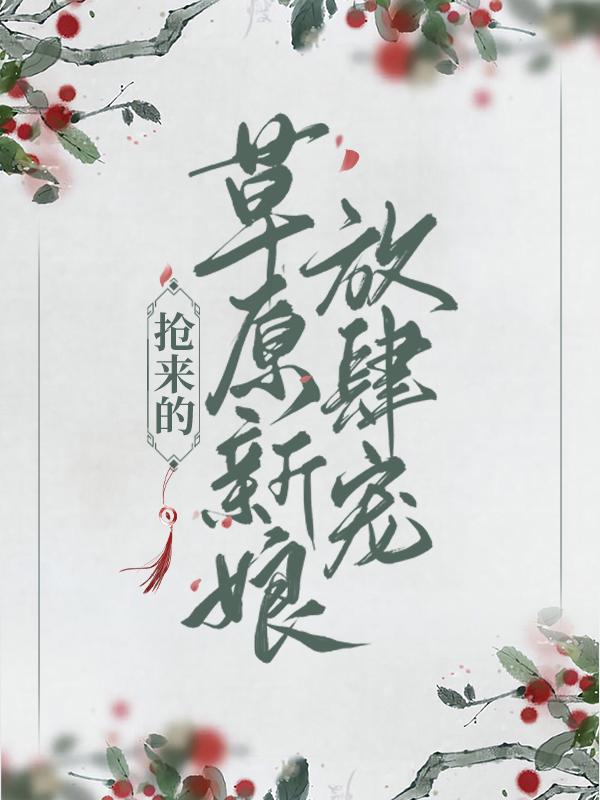 抢来的
草原新娘
放肆宠